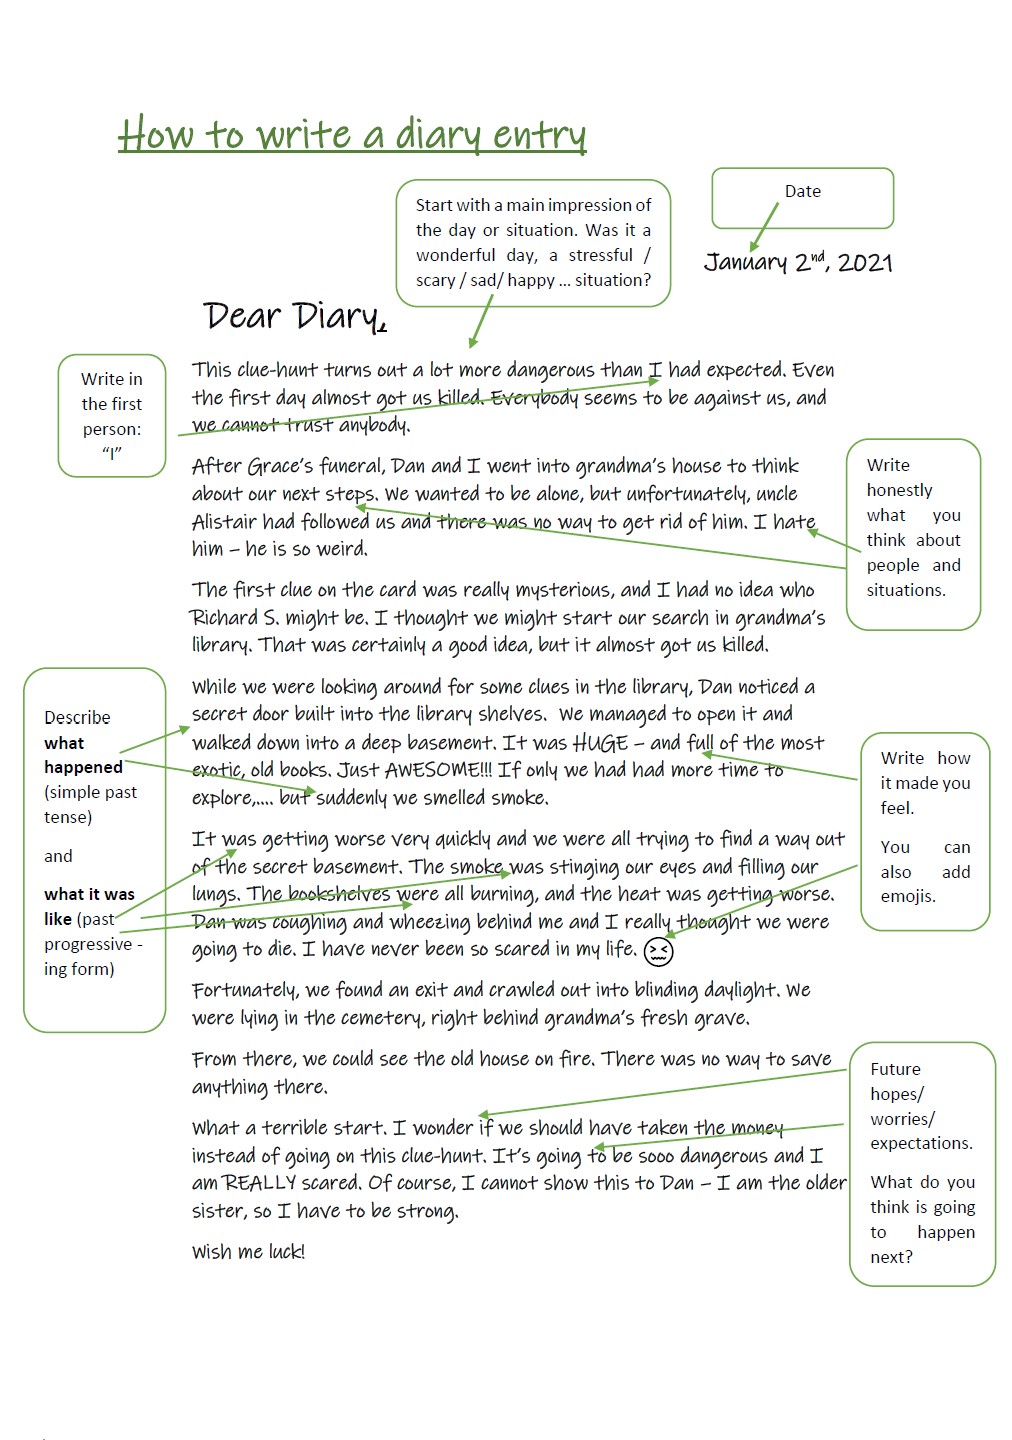 How to write a diary entry
Start with a main impression of
the day or situation. Was it a
wonderful day, a stressful /
scary / sad/ happy ... situation?
Date
January 2nd, 2021
Dear Diary,
Write in
the first
person:
“I”
This clue-hunt turns out a lot more dangerous than I had expected. Even
the first day almost got us killed. Everybody seems to be against us, and
we cannot trust anybody.
After Grace’s funeral, Dan and I went into grandma’s house to think
about our next steps. We wanted to be alone, but unfortunately, uncle
Alistair had followed us and there was no way to get rid of him. I hate
him – he is so weird.
Write
honestly
what you
think about
people and
situations.
The first clue on the card was really mysterious, and I had no idea who
Richard S. might be. I thought we might start our search in grandma’s
library. That was certainly a good idea, but it almost got us killed.
Describe
what
happened
(simple past
tense)
and
what it was
like (past
progressive -
ing form)
While we were looking around for some clues in the library, Dan noticed a
secret door built into the library shelves.  We managed to open it and
walked down into a deep basement. It was HUGE – and full of the most
exotic, old books. Just AWESOME!!! If only we had had more time to
explore,.... but suddenly we smelled smoke.
Write how
it made you
feel.
You can
also add
emojis.
It was getting worse very quickly and we were all trying to find a way out
of the secret basement. The smoke was stinging our eyes and filling our
lungs. The bookshelves were all burning, and the heat was getting worse.
Dan was coughing and wheezing behind me and I really thought we were
going to die. I have never been so scared in my life.
Fortunately, we found an exit and crawled out into blinding daylight. We
were lying in the cemetery, right behind grandma’s fresh grave.
From there, we could see the old house on fire. There was no way to save
anything there.
What a terrible start. I wonder if we should have taken the money
instead of going on this clue-hunt. It’s going to be sooo dangerous and I
am REALLY scared. Of course, I cannot show this to Dan – I am the older
sister, so I have to be strong.
Wish me luck!
Future
hopes/
worries/
expectations.
What do you
think is going
to happen
next?